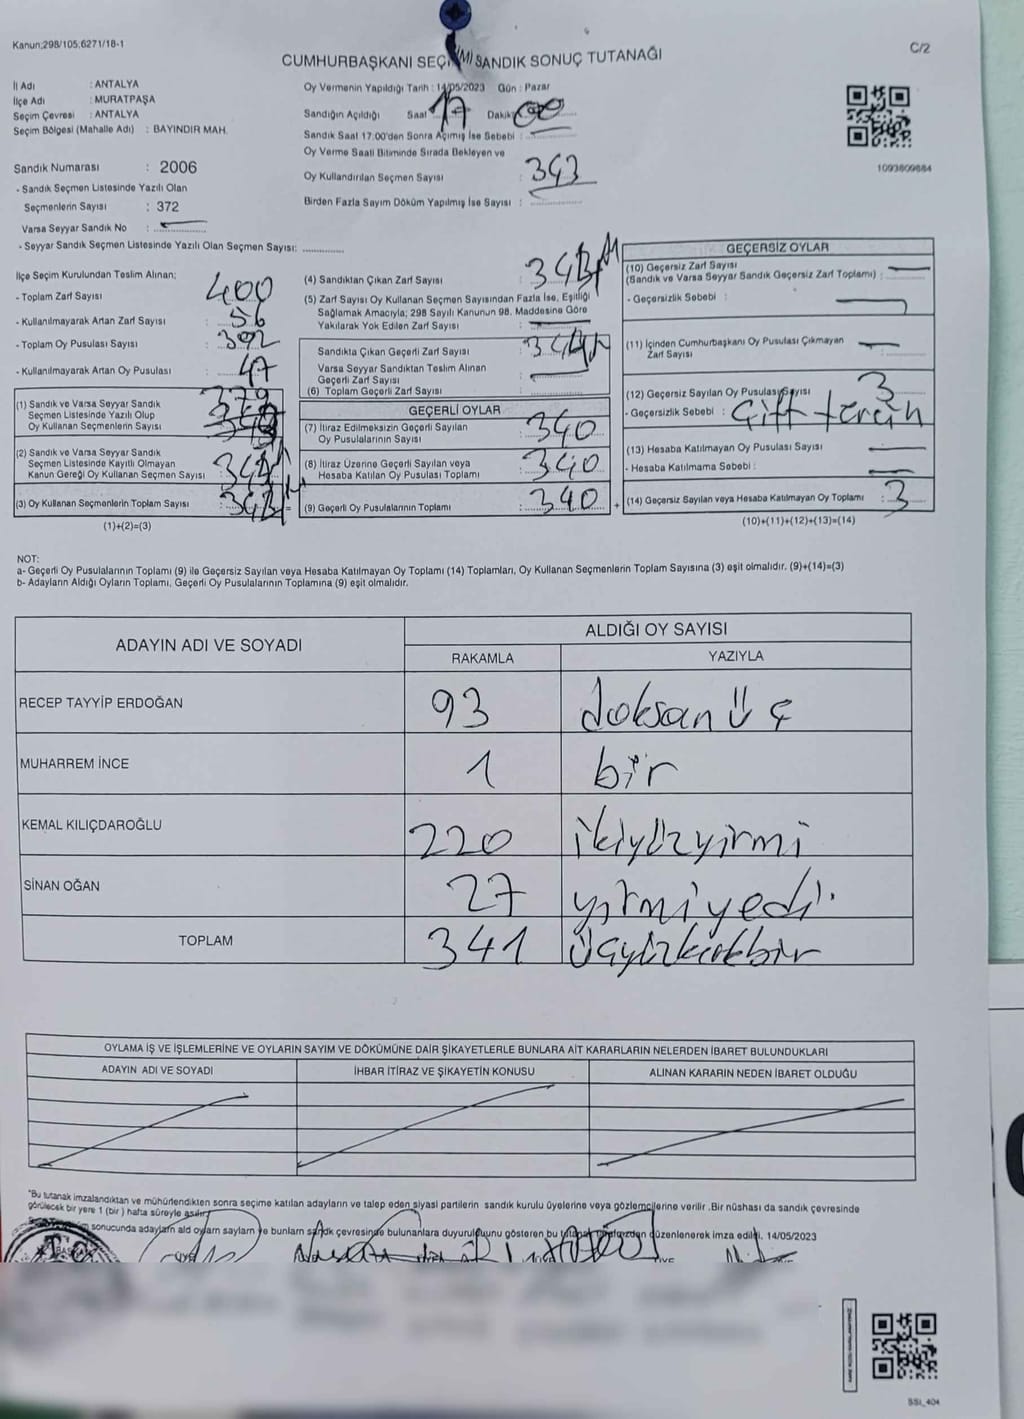 Kanun;298/105,6271/18-1
C/2
CUMHURBAŞKANI SEÇİMİ SANDIK SONUÇ TUTANAĞI
İl Adı : ANTALYA
İlçe Adı : MURATPAŞA
Seçim Çevresi : ANTALYA
Seçim Bölgesi (Mahalle Adı) : BAYINDIR MAH.
Oy Vermenin Yapıldığı Tarih : 14/05/2023 Gün : Pazar
Sandığın Açıldığı Saat 17 Dakika 00
Sandık Saat 17:00'den Sonra Açımış İse Sebebi :
Oy Verme Saati Bitiminde Sırada Bekleyen ve
Oy Kullandırılan Seçmen Sayısı : 343
Birden Fazla Sayım Döküm Yapılmış İse Sayısı :
1093809884
Sandık Numarası : 2006
- Sandık Seçmen Listesinde Yazılı Olan
Seçmenlerin Sayısı : 372
Varsa Seyyar Sandık No :
- Seyyar Sandık Seçmen Listesinde Yazılı Olan Seçmen Sayısı:
İlçe Seçim Kurulundan Teslim Alınan;
- Toplam Zarf Sayısı : 400
- Kullanılmayarak Artan Zarf Sayısı : 56
- Toplam Oy Pusulası Sayısı : 392
- Kullanılmayarak Artan Oy Pusulası : 47
(1) Sandık ve Varsa Seyyar Sandık
Seçmen Listesinde Yazılı Olup
Oy Kullanan Seçmenlerin Sayısı
(2) Sandık ve Varsa Seyyar Sandık
Seçmen Listesinde Kayıtlı Olmayan
Kanun Gereği Oy Kullanan Seçmen Sayısı
(3) Oy Kullanan Seçmenlerin Toplam Sayısı
(1)+(2)=(3)
(4) Sandıktan Çıkan Zarf Sayısı : 343
(5) Zarf Sayısı Oy Kullanan Seçmen Sayısından Fazla İse, Eşitliği
Sağlamak Amacıyla; 298 Sayılı Kanunun 98. Maddesine Göre
Yakılarak Yok Edilen Zarf Sayısı
Sandıkta Çıkan Geçerli Zarf Sayısı
Varsa Seyyar Sandıktan Teslim Alınan
Geçerli Zarf Sayısı
(6) Toplam Geçerli Zarf Sayısı
GEÇERLİ OYLAR
(7) İtiraz Edilmeksizin Geçerli Sayılan
Oy Pusulalarının Sayısı : 340
(8) İtiraz Üzerine Geçerli Sayılan veya
Hesaba Katılan Oy Pusulası Toplamı : 340
(9) Geçerli Oy Pusulalarının Toplamı : 340
GEÇERSİZ OYLAR
(10) Geçersiz Zarf Sayısı
(Sandık ve Varsa Seyyar Sandık Geçersiz Zarf Toplamı) :
- Geçersizlik Sebebi :
(11) İçinden Cumhurbaşkanı Oy Pusulası Çıkmayan
Zarf Sayısı
(12) Geçersiz Sayılan Oy Pusulası Sayısı : 3
- Geçersizlik Sebebi : Çift tercih
(13) Hesaba Katılmayan Oy Pusulası Sayısı
- Hesaba Katılmama Sebebi :
(14) Geçersiz Sayılan veya Hesaba Katılmayan Oy Toplamı : 3
(10)+(11)+(12)+(13)=(14)
NOT:
a- Geçerli Oy Pusulalarının Toplamı (9) ile Geçersiz Sayılan veya Hesaba Katılmayan Oy Toplamı (14) Toplamları, Oy Kullanan Seçmenlerin Toplam Sayısına (3) eşit olmalıdır. (9)+(14)=(3)
b- Adayların Aldığı Oyların Toplamı, Geçerli Oy Pusulalarının Toplamına (9) eşit olmalıdır.
ADAYIN ADI VE SOYADI
ALDIĞI OY SAYISI
RAKAMLA YAZIYLA
RECEP TAYYİP ERDOĞAN 93 doksan üç
MUHARREM İNCE 1 bir
KEMAL KILIÇDAROĞLU 220 ikiyüzyirmi
SİNAN OĞAN 27 yirmiyedi.
TOPLAM 341 üçyüzkırkbir
OYLAMA İŞ VE İŞLEMLERİNE VE OYLARIN SAYIM VE DÖKÜMÜNE DAİR ŞİKAYETLERLE BUNLARA AİT KARARLARIN NELERDEN İBARET BULUNDUKLARI
ADAYIN ADI VE SOYADI İHBAR İTİRAZ VE ŞİKAYETİN KONUSU ALINAN KARARIN NEDEN İBARET OLDUĞU
"Bu tutanak imzalandıktan ve mühürlendikten sonra seçime katılan adayların ve talep eden siyasi partilerin sandık kurulu üyelerine veya gözlemcilerine verilir .Bir nüshası da sandık çevresinde
görülecek bir yere 1 (bir ) hafta süreyle asılır.
sonucunda adayların ald oyların sayları ve bunların sandık çevresinde bulunanlara duyurulduğunu gösteren bu tutanak tarafımızdan düzenlenerek imza edildi. 14/05/2023
SSI_404